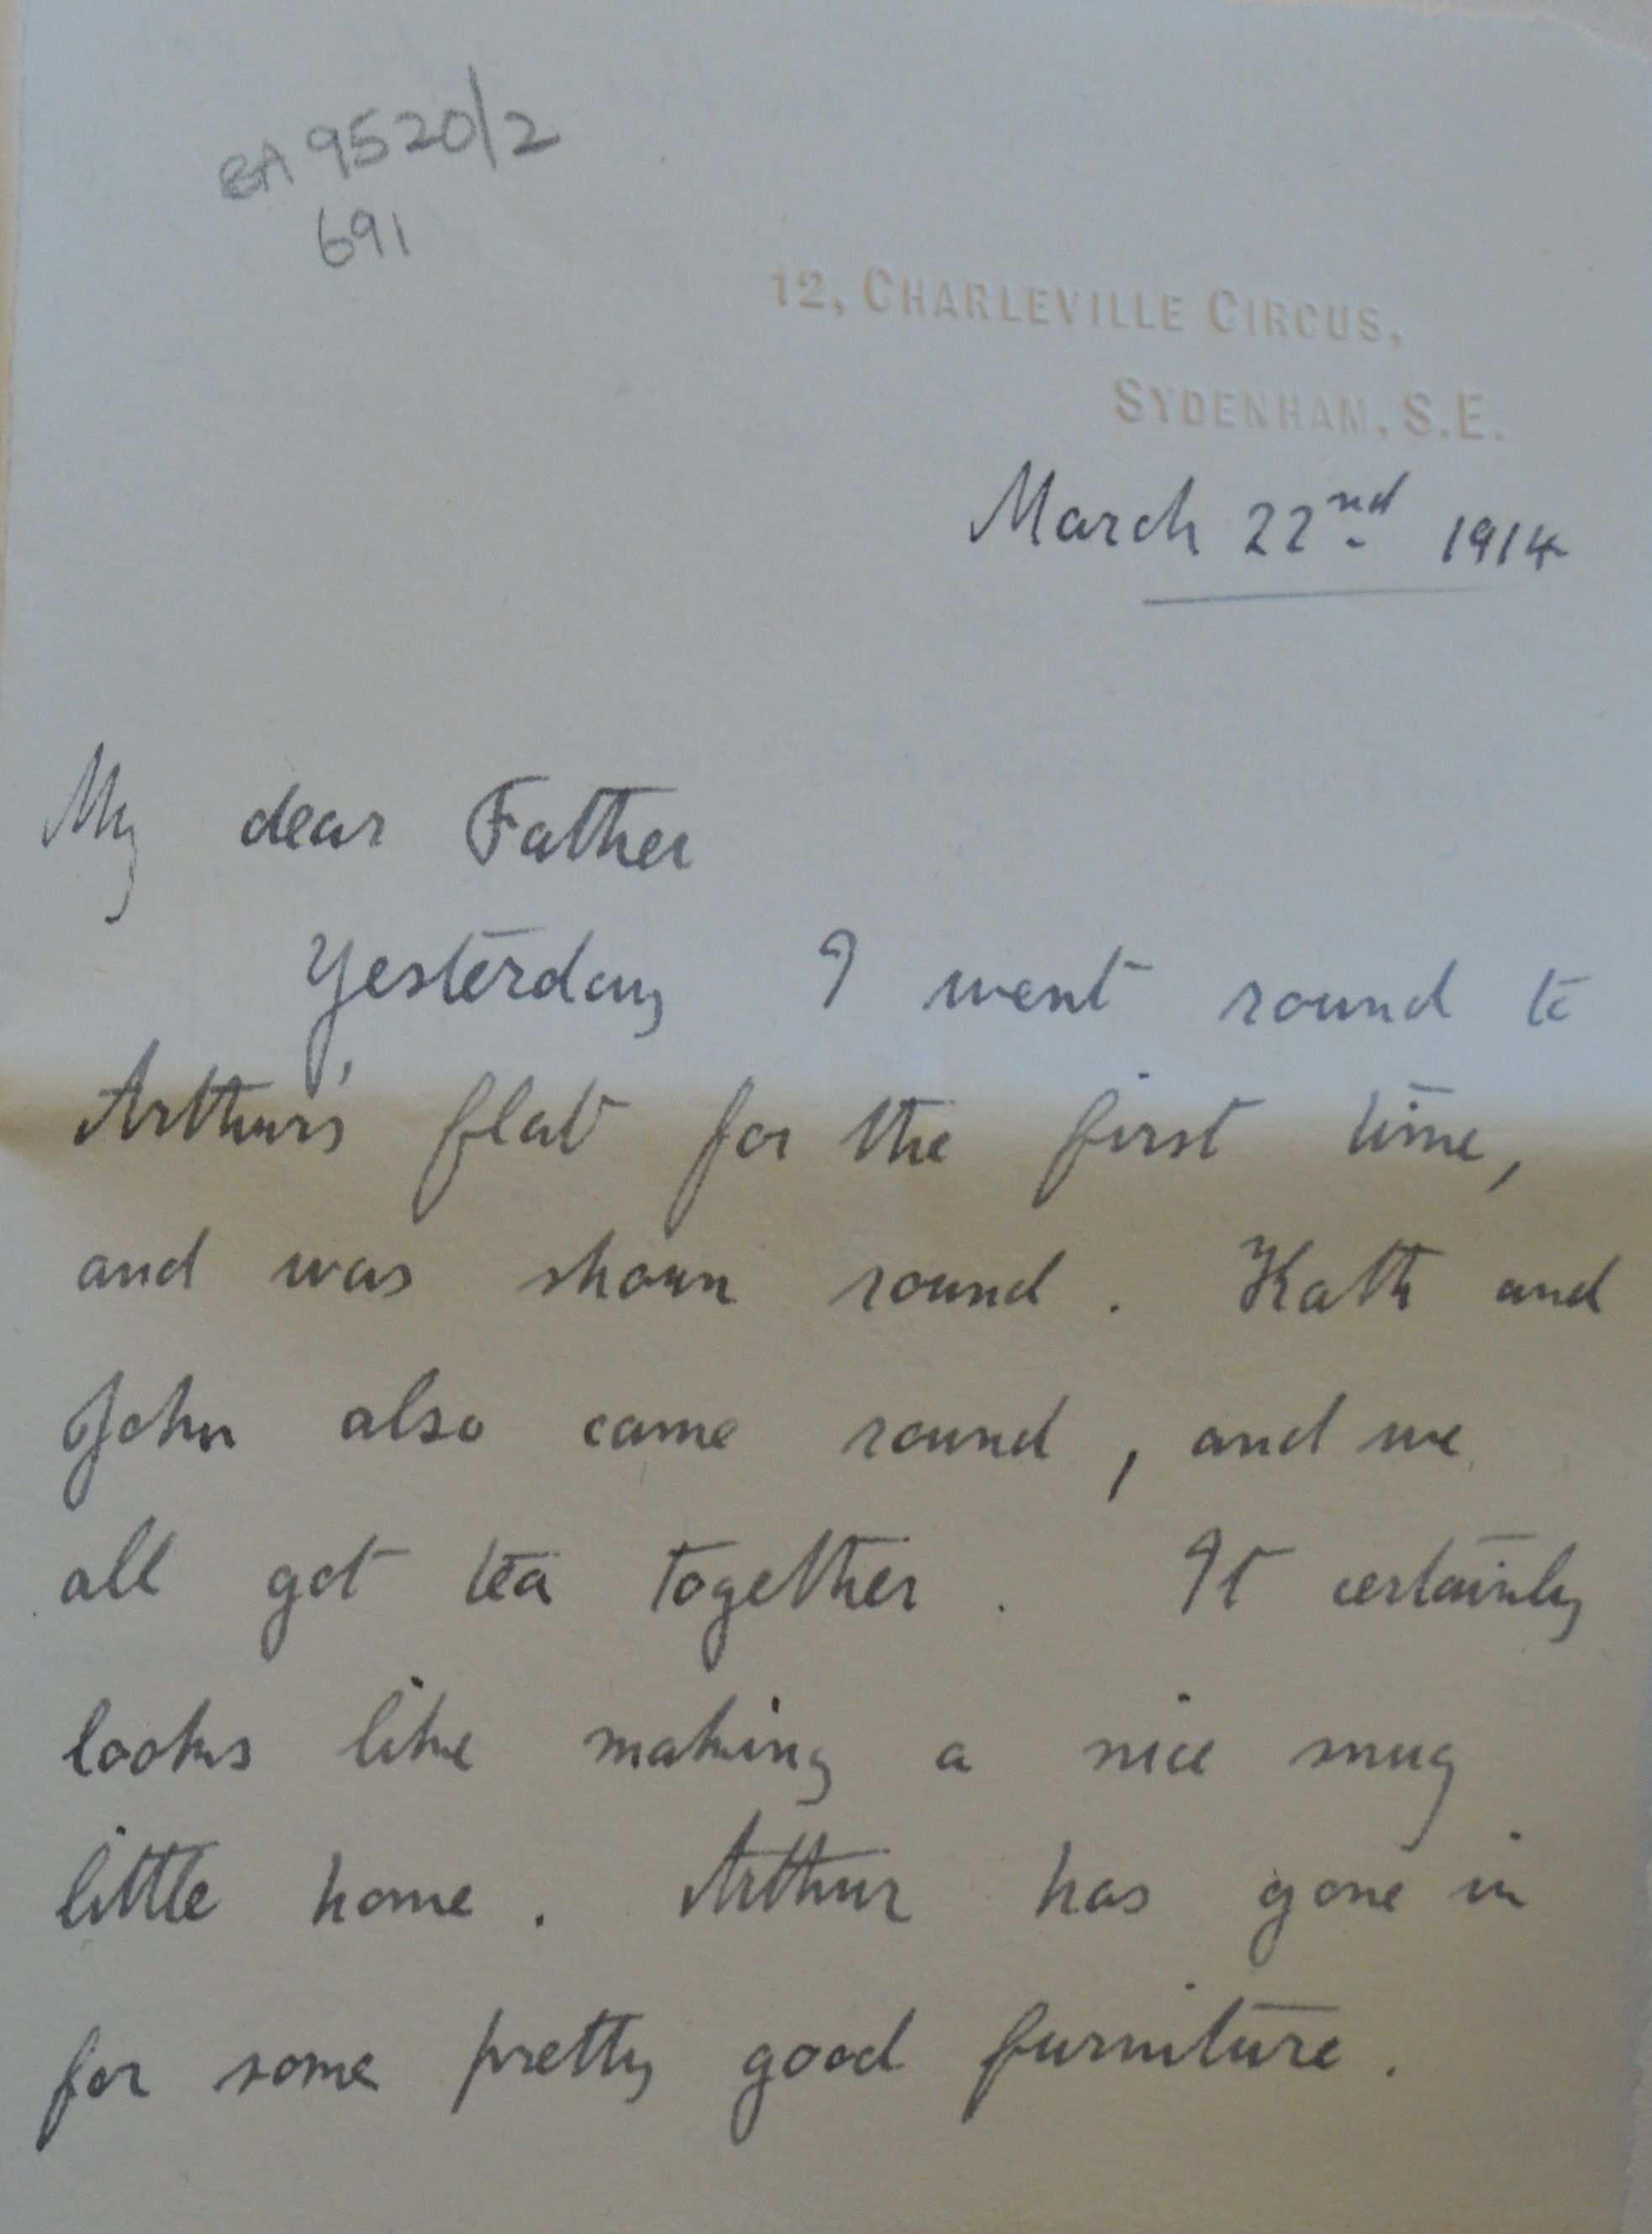 BA 9520/2
691
12, CHARLEVILLE CIRCUS,
SYDENHAM, S.E.
March 22nd 1914
My dear Father
Yesterday I went round to
Arthur's flat for the first time,
and was shown round. Kath and
John also came round, and we
all got tea together. It certainly
looks like making a nice snug
little home. Arthur has gone in
for some pretty good furniture.